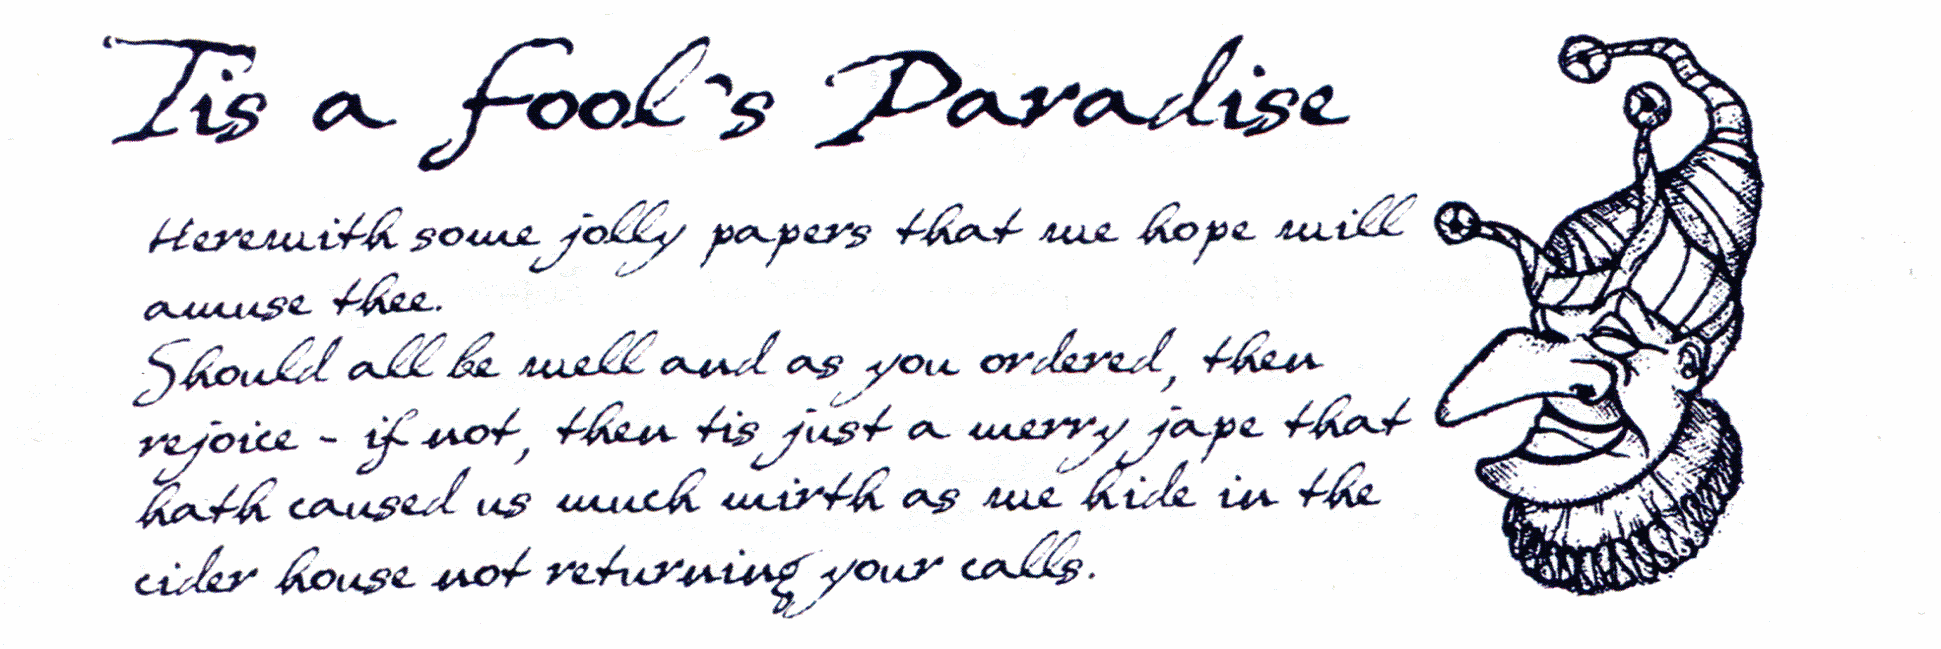 'Tis a fool's Paradise
Herewith some jolly papers that we hope will
amuse thee.
Should all be well and as you ordered, then
rejoice - if not, then tis just a merry jape that
hath caused us much mirth as we hide in the
cider house not returning your calls.